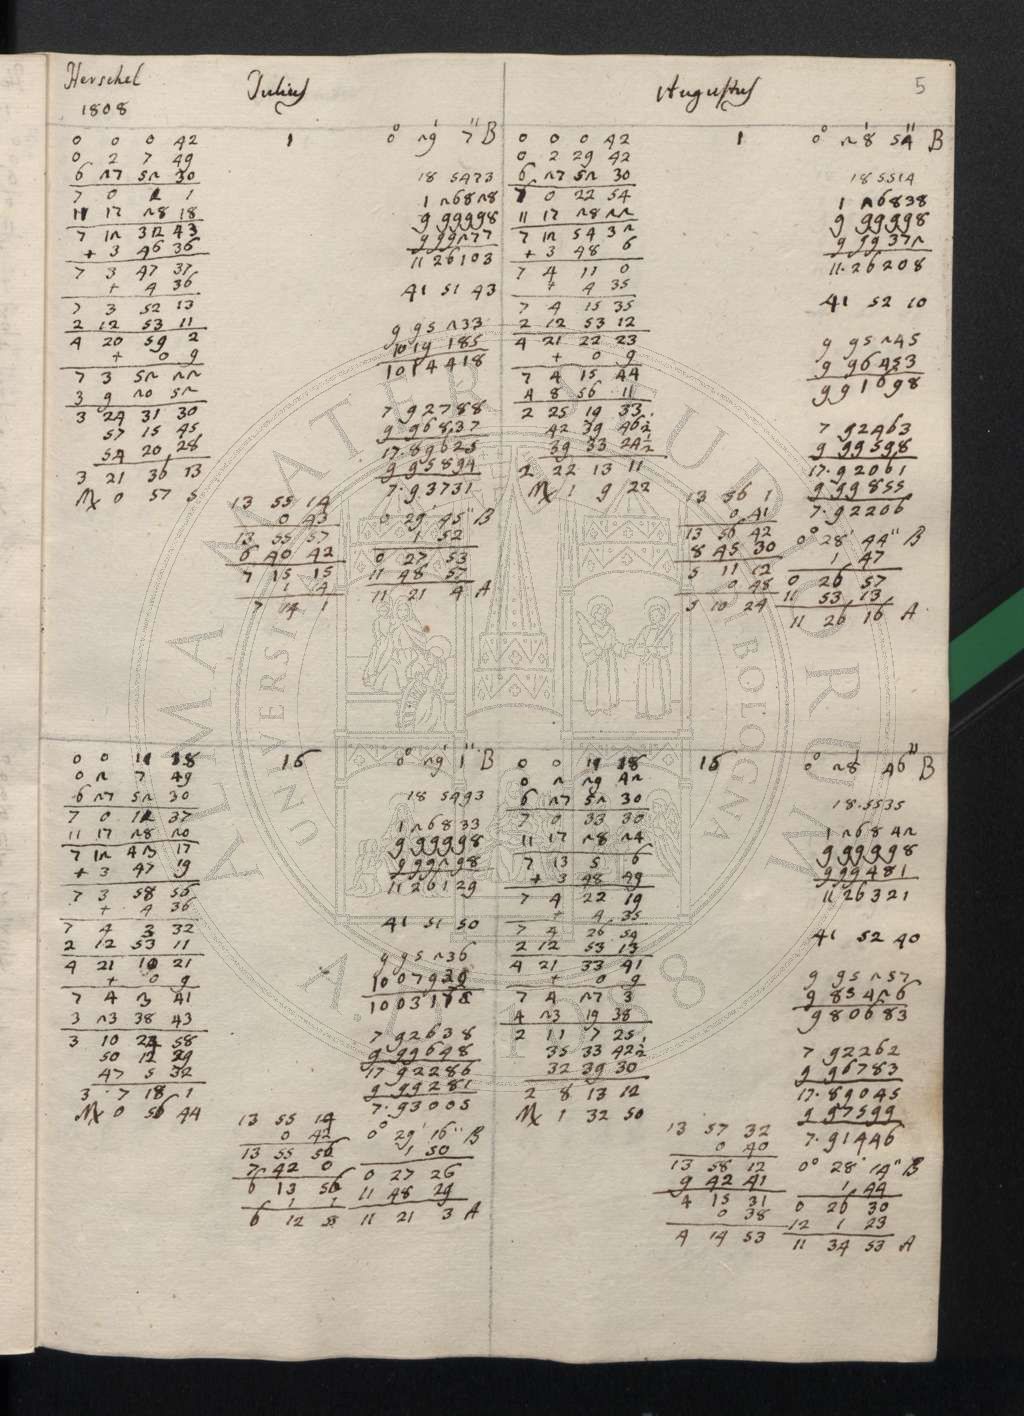 Herschel
1808
Julius
Augustus
5
1
0 0 0 42
0 2 7 49
6 27 52 30
7 0 1 1
11 17 28 18
7 12 32 43
+ 3 46 36
7 3 47 37
+ 4 36
7 3 52 13
2 12 53 11
4 20 59 2
+ 0 9
7 3 52 22
3 9 20 52
3 24 31 30
57 15 45
54 20 28
3 21 36 13
♏ 0 57 5
0° 29' 7" B
18 5473
1 26828
9 99998
9 99277
11 26103
41 51 43
9 95233
10 19185
10 14418
7 92788
9 96837
17.89625
9 95894
7.93731
13 55 14
0 43
13 55 57
6 40 42
7 15 15
1 4
7 14 1
0 29' 45" B
1 52
0 27 53
11 48 57
11 21 4 A
1
0 0 0 42
0 2 29 42
6 27 52 30
7 0 22 54
11 17 28 22
7 12 54 32
+ 3 48 6
7 4 11 0
+ 4 35
7 4 15 35
2 12 53 12
4 21 22 23
+ 0 9
7 4 15 44
4 8 56 11
2 25 19 33
42 39 46½
39 33 24½
2 22 13 11
♏ 1 9 22
0° 28' 54" B
18 5514
1 26838
9 99998
9 99372
11.26208
41 52 10
9 95245
9 96453
9 91698
7 92463
9 99598
17.92061
9 99855
7.92206
13 56 1
0 41
13 56 42
8 45 30
5 11 12
0 48
5 10 24
0° 28' 44" B
1 47
0 26 57
11 53 13
11 26 16 A
16
0 0 11 18
0 2 7 49
6 27 52 30
7 0 11 37
11 17 28 20
7 12 43 17
+ 3 47 19
7 3 58 56
+ 4 36
7 4 3 32
2 12 53 11
4 21 10 21
+ 0 9
7 4 3 41
3 23 38 43
3 10 24 58
50 12 29
47 5 32
3 7 18 1
♏ 0 56 44
0° 29' 1" B
18 5493
1 26833
9 99998
9 99298
11 26129
41 51 50
9 95236
10 07939
10 03175
7 92638
9 99648
17 92286
9 99281
7.93005
13 55 14
0 42
13 55 56
7 42 0
6 13 56
1 1
6 12 55
0° 29' 16" B
1 50
0 27 26
11 48 29
11 21 3 A
16
0 0 11 18
0 2 29 42
6 27 52 30
7 0 33 30
11 17 28 24
7 13 5 6
+ 3 48 49
7 4 22 19
+ 4 35
7 4 26 54
2 12 53 13
4 21 33 41
+ 0 9
7 4 27 3
4 23 19 38
2 11 7 25
35 33 42½
32 39 30
2 8 13 12
♏ 1 32 50
0° 28' 46" B
18.5535
1 26842
9 99998
9 99481
11 26321
41 52 40
9 95257
9 85426
9 80683
7 92262
9 96783
17.89045
9 97599
7.91446
13 57 32
0 40
13 58 12
9 42 41
4 15 31
0 38
4 14 53
0° 28' 14" B
1 44
0 26 30
12 1 23
11 34 53 A
ALMA MATER STUDIORUM
A.D. 1088